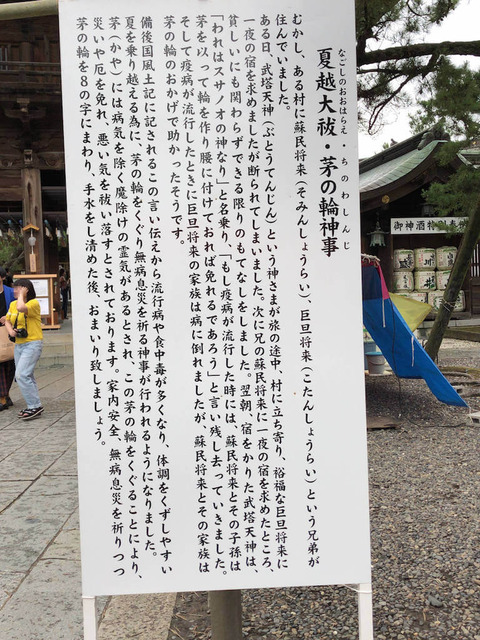 なごしのおおはらえ・ちのわしんじ
夏越大祓・茅の輪神事
むかし、ある村に蘇民将来（そみんしょうらい）、巨旦将来（こたんしょうらい）という兄弟が
住んでいました。
ある日、武塔天神（ぶとうてんじん）という神さまが旅の途中、村に立ち寄り、裕福な巨旦将来に
一夜の宿を求めましたが断られてしまいました。次に兄の蘇民将来に一夜の宿を求めたところ、
貧しいにも関わらずできる限りのもてなしをしました。翌朝、宿をかりた武塔天神は、
「われはスサノオの神なり」と名乗り、「もし疫病が流行した時には、蘇民将来とその子孫は
茅を以って輪を作り腰に付けておれば免れるであろう」と言い残し去っていきました。
そして疫病が流行したときに巨旦将来の家族は病に倒れましたが、蘇民将来とその家族は
茅の輪のおかげで助かったそうです。
備後国風土記に記されるこの言い伝えから流行病や食中毒が多くなり、体調をくずしやすい
夏を乗り越える為に、茅の輪をくぐり無病息災を祈る神事が行われるようになりました。
茅（かや）には病気を除く魔除けの霊気があるとされ、この茅の輪をくぐることにより、
災いや厄を免れ、悪い気を祓い落とすとされております。家内安全、無病息災を祈りつつ
茅の輪を８の字にまわり、手水をし清めた後、おまいり致しましょう。
御神酒特別奉納